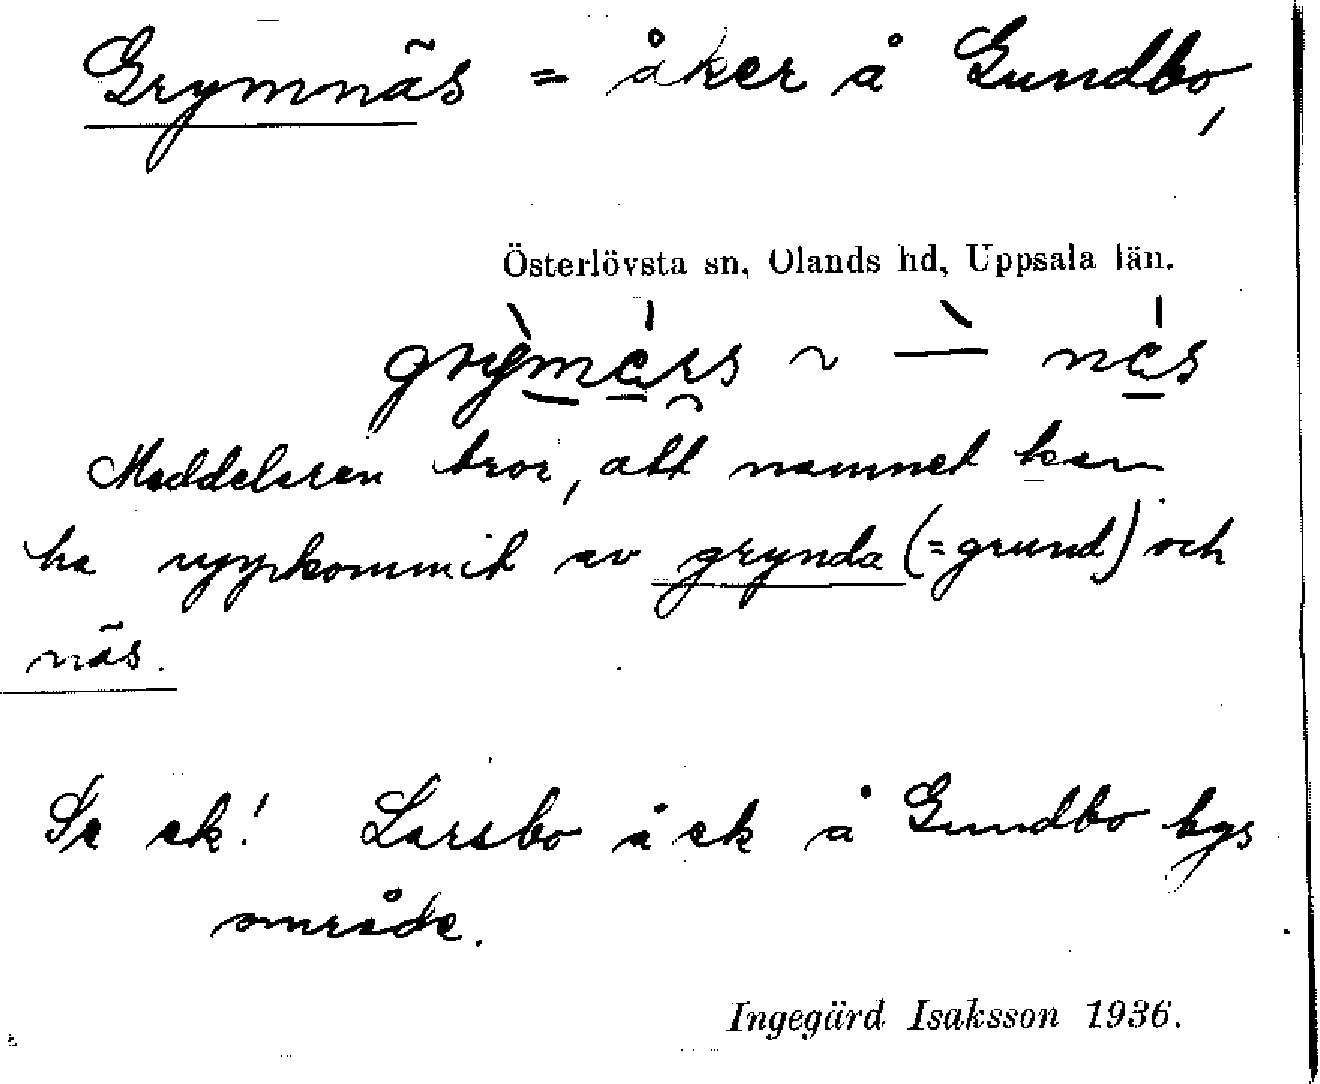 Grymnäs = åker å Gundbo,
Österlövsta sn, Olands hd, Uppsala län.
Meddelaren tror, att namnet kan
ha uppkommit av grynda (=grund) och
näs.
Se ek! Larsbo å ek å Gundbo bys
område.
Ingegärd Isaksson 1936.